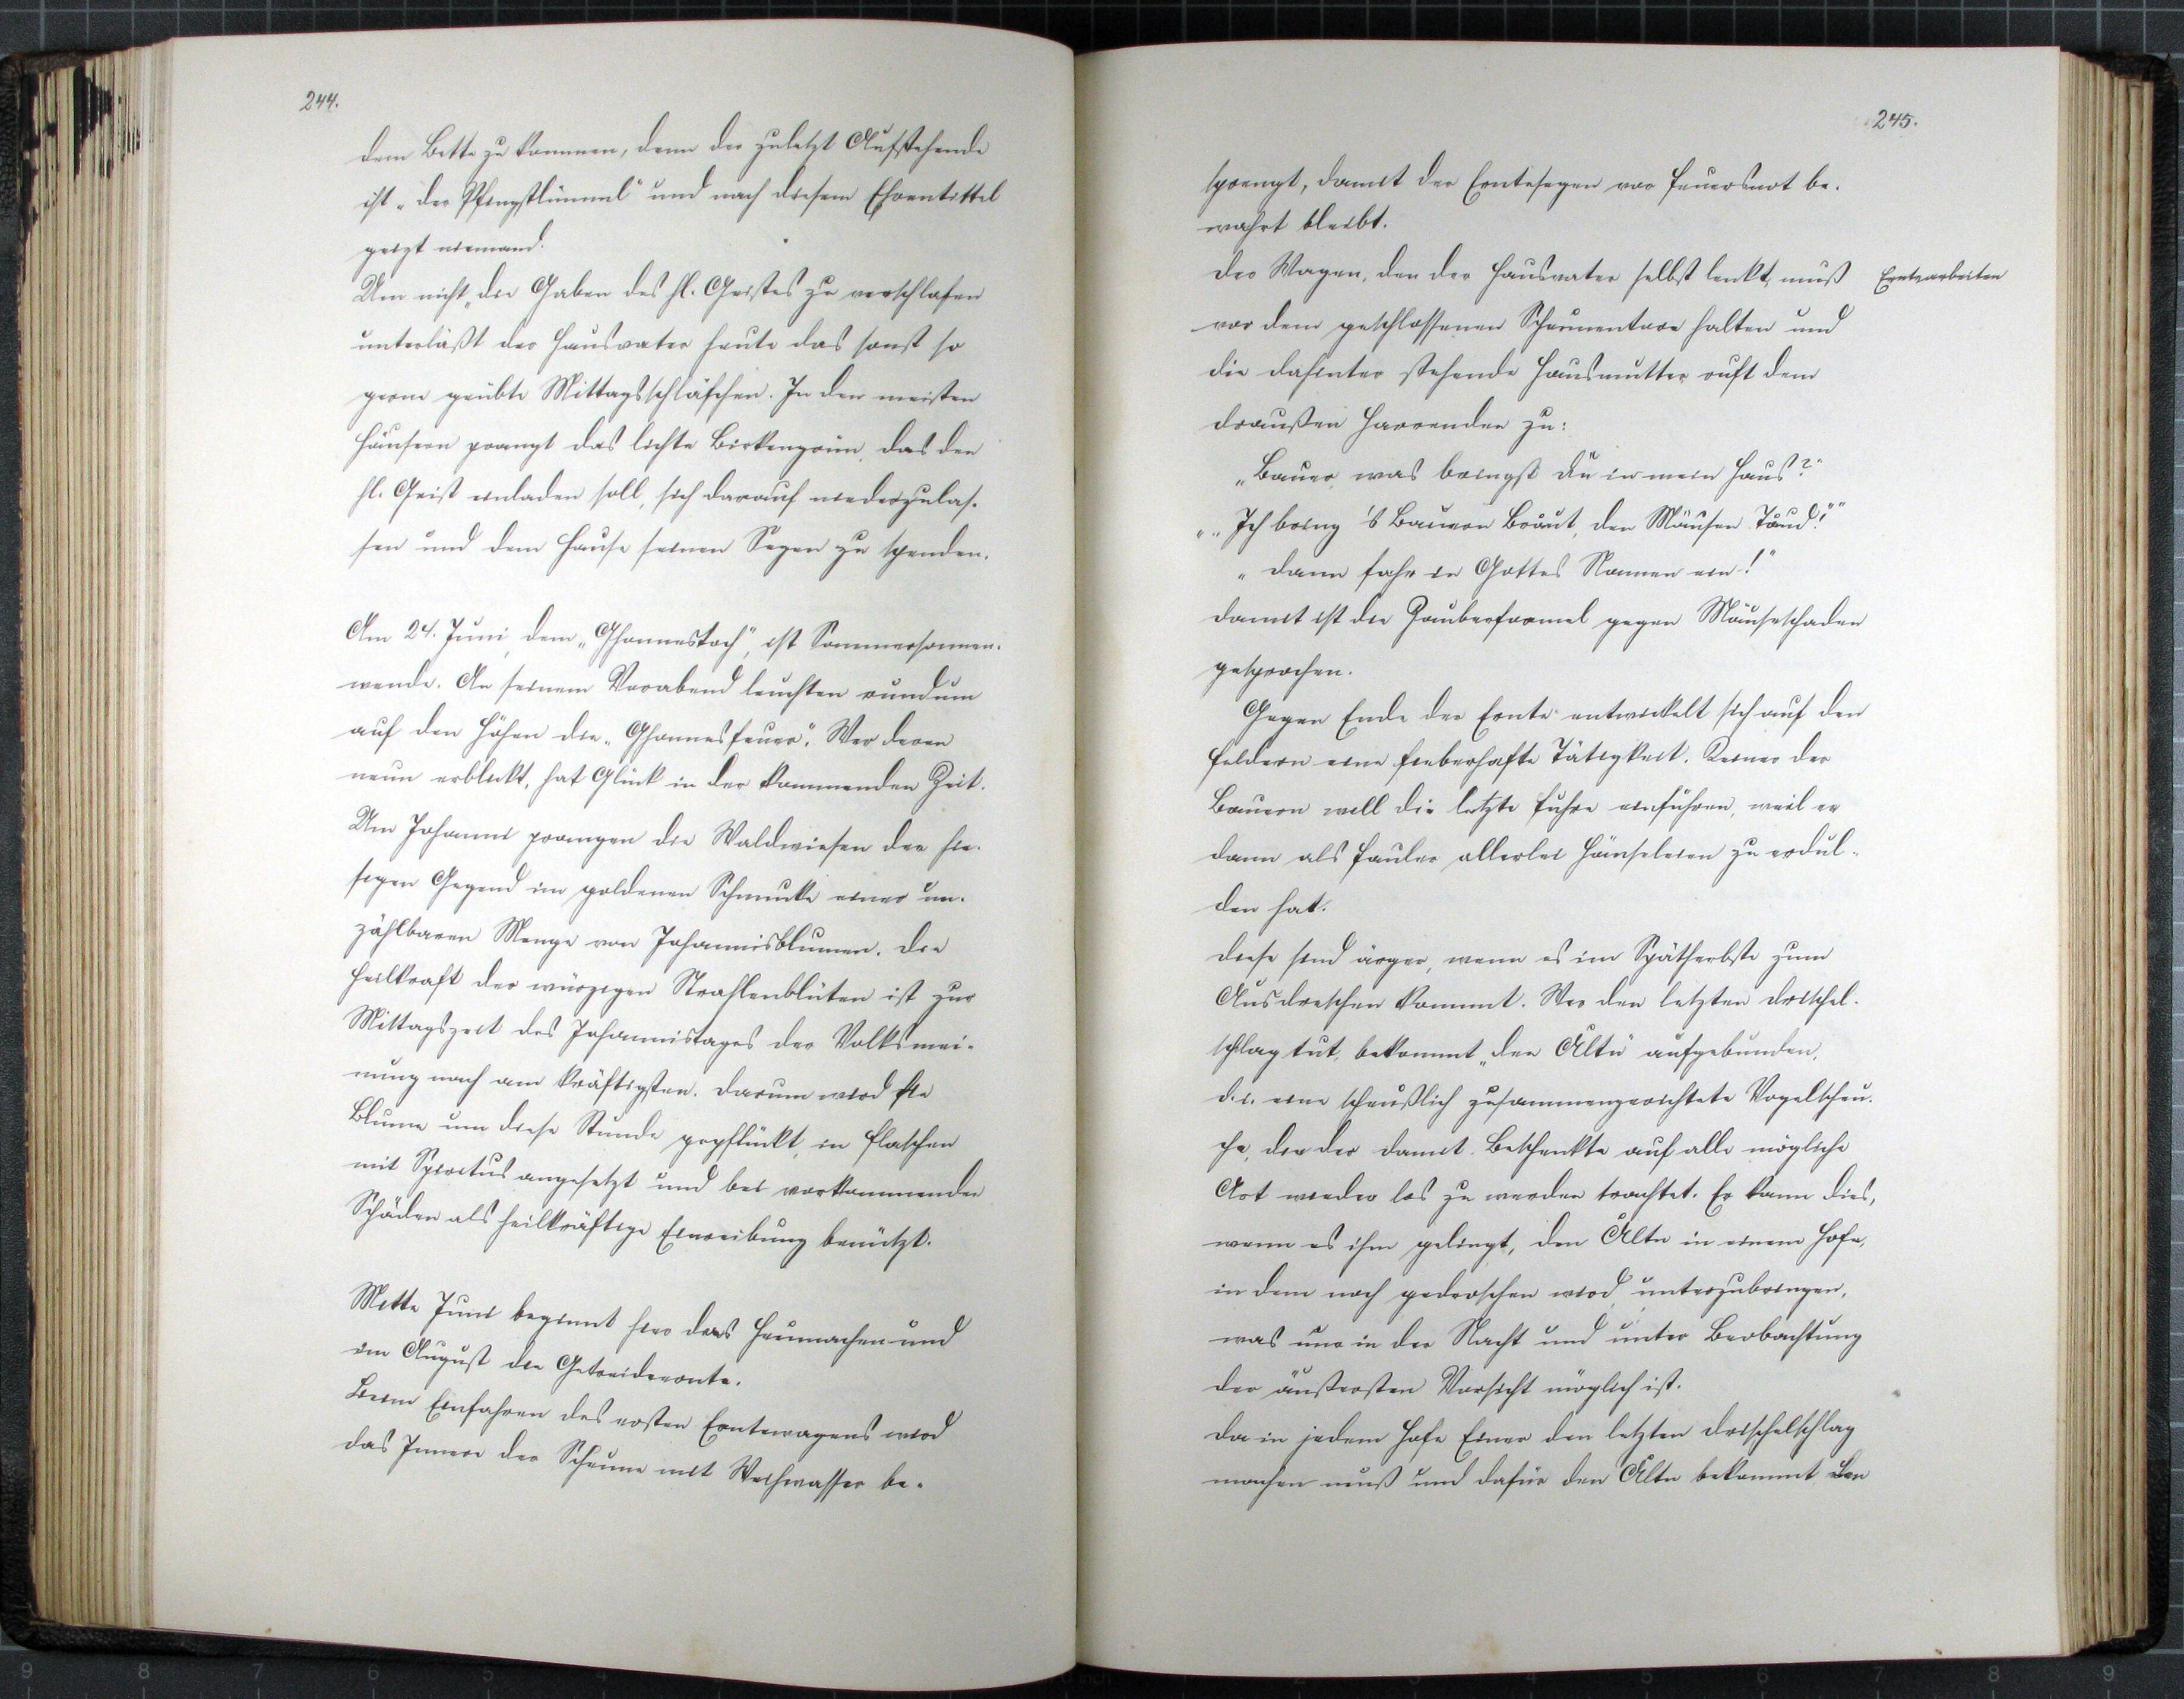 244.
dem Bette zu kommen, denn der zuletzt Aufstehende
ist „der Pfingstlümmel" und nach diesem Ehrentittel
geizt niemand.
Um nicht „die Gaben des hl. Geistes zu verschlafen
unterläßt der Hausvater heute das sonst so
gerne geübte Mittagsschläfchen. In den meisten
Häusern prangt das lichte Birkengrün, das den
hl. Geist einladen soll, sich darauf niederzulas-
sen und dem Hause seinen Segen zu spenden.
Am 24. Juni, dem „Ghannestoch", ist Sommersonnen-
wende. An seinem Vorabend leuchten rundum
auf den Höhen die „Ghannesfeuer". Wer deren
neun erblickt, hat Glück in der kommenden Zeit.
Um Johanni prangen die Waldwiesen der hie-
sigen Gegend im goldenen Schmucke einer un-
zählbaren Menge von Johannisblumen. Die
Heilkraft der würzigen Strahlenblüten ist zur
Mittagszeit des Johannistages der Volksmei-
nung nach am kräftigsten. Darum wird die
Blume um diese Stunde gepflückt, in Flaschen
mit Spiritus angesetzt und bei vorkommenden
Schäden als heilkräftige Einreibung benützt.
Mitte Juni beginnt hier das Heumachen und
im August die Getreideernte.
Beim Einfahren des ersten Erntewagens wird
das Innere der Scheune mit Weihwasser be-
245.
sprengt, damit der Erntesegen vor Feuersnot be-
wahrt bleibt.
Der Wagen, den der Hausvater selbst lenkt, muß
Erntearbeiten
vor dem geschlossenen Scheunentore halten und
die dahinter stehende Hausmutter ruft dem
draußen Harrenden zu:
„Bauer, was bringst du in mein Haus?"
„„Ich bring 's Bauern Bråut, den Mäusen Tåud!""
„Dann fahr in Gottes Namen ein!"
Damit ist die Zauberformel gegen Mäuseschaden
gesprochen.
Gegen Ende der Ernte entwickelt sich auf den
Feldern eine fieberhafte Tätigkeit. Keiner der
Bauern will die letzte Fuhre einführen, weil er
dann als Fauler allerlei Hänseleien zu erdul-
den hat.
Diese sind ärger, wenn es im Spätherbste zum
Ausdreschen kommt. Wer den letzten Drischel-
schlag tut, bekommt „den Åltn" aufgebunden,
d. i. eine scheußlich zusammengerichtete Vogelscheu-
che, die der damit Beschenkte auf alle mögliche
Art wieder los zu werden trachtet. Er kann dies,
wenn es ihm gelingt, den Åltn in einem Hofe,
in dem noch gedroschen wird, unterzubringen,
was nur in der Nacht und unter Beobachtung
der äußersten Vorsicht möglich ist.
Da in jedem Hofe Einer den letzten Drischelschlag
machen muß und dafür den Åltn bekommt, den